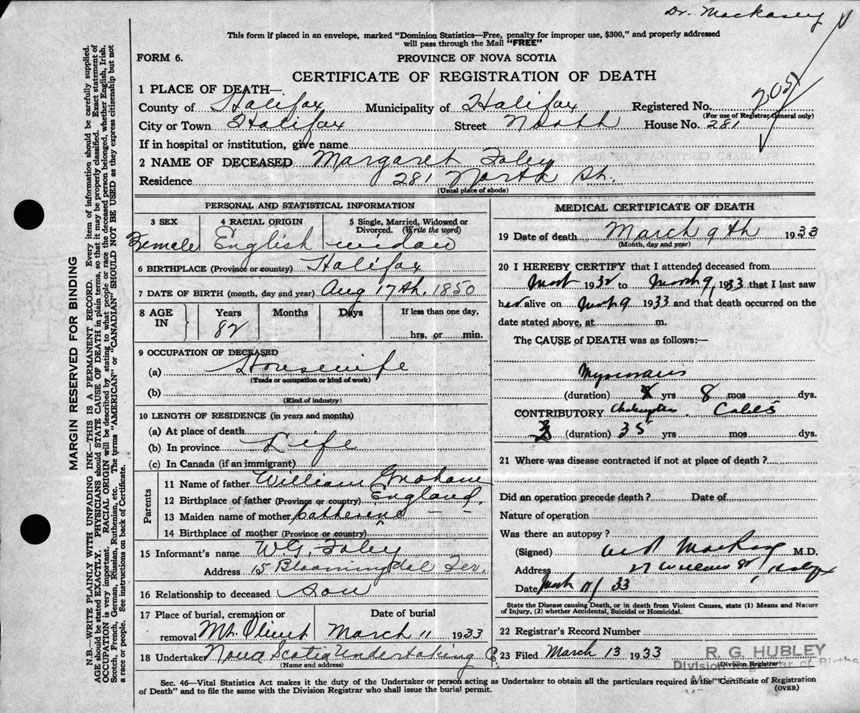 Dr. Mackasey
This form if placed in an envelope, marked "Dominion Statistics—Free, penalty for improper use, $300," and properly addressed
will pass through the Mail "FREE"
FORM 6.
PROVINCE OF NOVA SCOTIA
CERTIFICATE OF REGISTRATION OF DEATH
1 PLACE OF DEATH—
County of Halifax Municipality of Halifax Registered No.
(For use of Registrar General only)
City or Town Halifax Street North House No. 281
If in hospital or institution, give name
2 NAME OF DECEASED Margaret Foley
Residence 281 North St.
(Usual place of abode)
PERSONAL AND STATISTICAL INFORMATION
3 SEX 4 RACIAL ORIGIN 5 Single, Married, Widowed or
Divorced. (Write the word)
Female English widow
6 BIRTHPLACE (Province or country) Halifax
7 DATE OF BIRTH (month, day and year) Aug 17th. 1850
8 AGE IN Years Months Days If less than one day,
82 hrs. or min.
9 OCCUPATION OF DECEASED
(a) Housewife
(Trade or occupation or kind of work)
(b)
(Kind of industry)
10 LENGTH OF RESIDENCE (in years and months)
(a) At place of death
(b) In province Life
(c) In Canada (if an immigrant)
Parents
11 Name of father William Graham
12 Birthplace of father (Province or country) England
13 Maiden name of mother Catherine — —
14 Birthplace of mother (Province or country)
15 Informant's name W.G. Foley
Address 15 Bloomingdal Ter.
16 Relationship to deceased son
17 Place of burial, cremation or Date of burial
removal Mt. Olivet March 11 1933
18 Undertaker Nova Scotia Undertaking Co.
(Name and address)
MEDICAL CERTIFICATE OF DEATH
19 Date of death March 9th 1933
(Month, day and year)
20 I HEREBY CERTIFY that I attended deceased from
1932 to March 9, 1933 that I last saw
her alive on March 9 1933 and that death occurred on the
date stated above, at m.
The CAUSE of DEATH was as follows:—
(duration) yrs 8 mos dys.
CONTRIBUTORY
(duration) 35 yrs mos dys.
21 Where was disease contracted if not at place of death?
Did an operation precede death? Date of
Nature of operation
Was there an autopsy?
(Signed) M.D.
Address
Date March 11/33
State the Disease causing Death, or in death from Violent Causes, state (1) Means and Nature
of Injury, (2) whether Accidental, Suicidal or Homicidal.
22 Registrar's Record Number
23 Filed March 13 1933 R. G. HUBLEY
Division Registrar of Births
(Division Registrar)
Sec. 46—Vital Statistics Act makes it the duty of the Undertaker or person acting as Undertaker to obtain all the particulars required in the "Certificate of Registration
of Death" and to file the same with the Division Registrar who shall issue the burial permit.
(OVER)
MARGIN RESERVED FOR BINDING
N.B.—WRITE PLAINLY WITH UNFADING INK—THIS IS A PERMANENT RECORD. Every item of information should be carefully supplied.
AGE should be stated EXACTLY. PHYSICIANS should STATE CAUSE OF DEATH in plain terms, so that it may be properly classified. Exact statement of
OCCUPATION is very important. RACIAL ORIGIN will be described by stating to what people or race the deceased person belonged, whether English, Irish,
Scotch, French, German, Russian, Ruthenian, etc. The terms "AMERICAN" or "CANADIAN" SHOULD NOT BE USED as they express citizenship but not
a race or people. See instructions on back of Certificate.